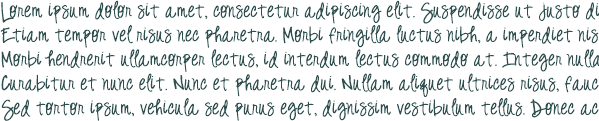 Lorem ipsum dolor sit amet, consectetur adipiscing elit. Suspendisse ut justo di
Etiam tempor vel risus nec pharetra. Morbi fringilla luctus nibh, a imperdiet nis
Morbi hendrerit ullamcorper lectus, id interdum lectus commodo at. Integer nulla
Curabitur et nunc elit. Nunc et pharetra dui. Nullam aliquet ultrices risus, fauc
Sed tortor ipsum, vehicula sed purus eget, dignissim vestibulum tellus. Donec ac